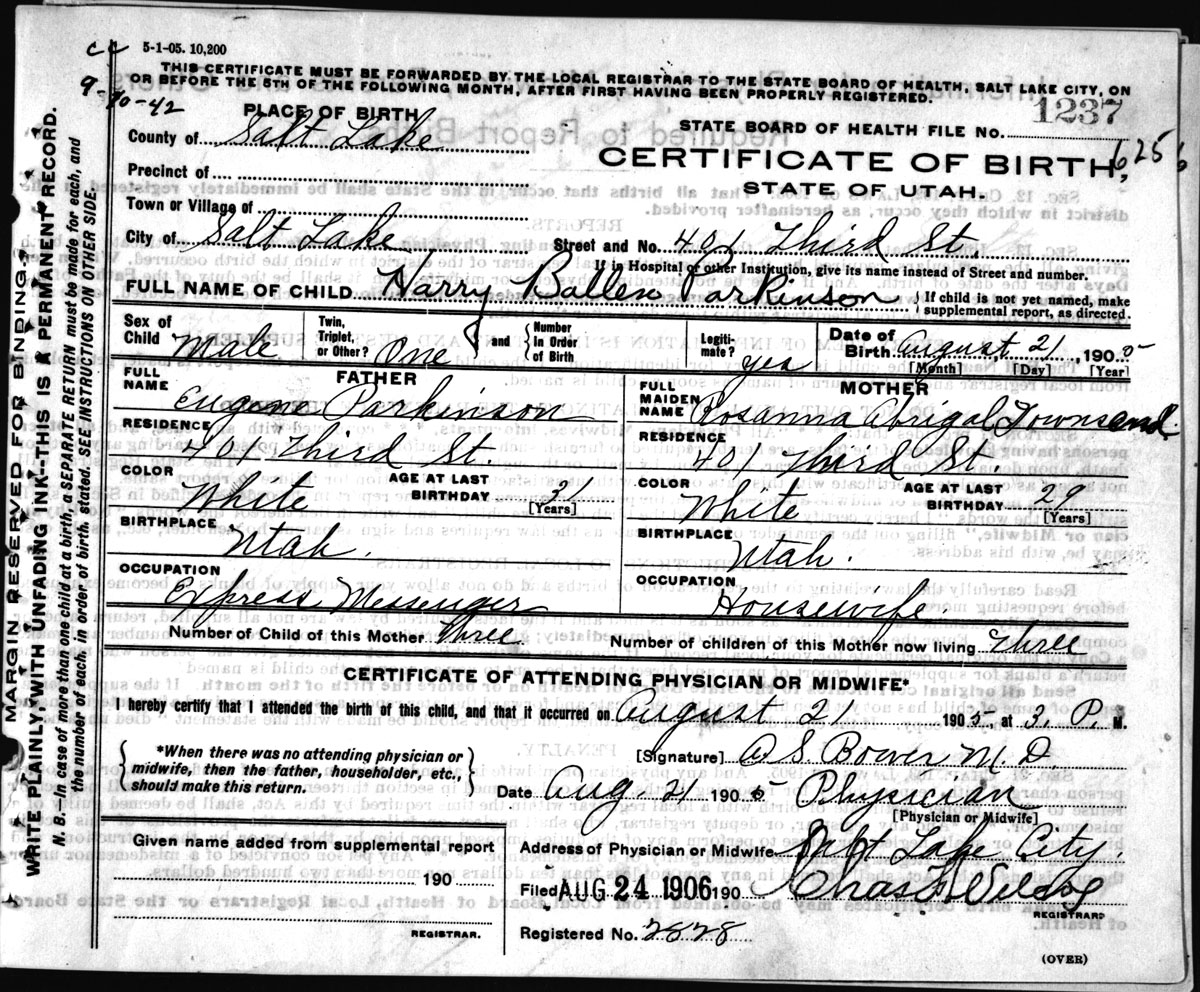 cc 5-1-05. 10,200
9-10-42
THIS CERTIFICATE MUST BE FORWARDED BY THE LOCAL REGISTRAR TO THE STATE BOARD OF HEALTH, SALT LAKE CITY, ON
OR BEFORE THE 5TH OF THE FOLLOWING MONTH, AFTER FIRST HAVING BEEN PROPERLY REGISTERED.
PLACE OF BIRTH
County of Salt Lake
Precinct of
Town or Village of
City of Salt Lake
STATE BOARD OF HEALTH FILE No. 1237
CERTIFICATE OF BIRTH,
STATE OF UTAH.
Street and No. 401 Third St.
If in Hospital or other Institution, give its name instead of Street and number.
FULL NAME OF CHILD Harry Ballen Parkinson { If child is not yet named, make supplemental report, as directed.
Sex of Child Male
Twin, Triplet, or Other? One and { Number In Order of Birth
Legitimate? yes
Date of Birth August 21, 1905
[Month] [Day] [Year]
FATHER
FULL NAME Eugene Parkinson
RESIDENCE 401 Third St.
COLOR White
AGE AT LAST BIRTHDAY 31
[Years]
BIRTHPLACE Utah.
OCCUPATION Express Messenger
MOTHER
FULL MAIDEN NAME Rosanna Abrigal Townsend.
RESIDENCE 401 Third St.
COLOR White
AGE AT LAST BIRTHDAY 29
[Years]
BIRTHPLACE Utah.
OCCUPATION Housewife.
Number of Child of this Mother Three
Number of children of this Mother now living Three
CERTIFICATE OF ATTENDING PHYSICIAN OR MIDWIFE*
I hereby certify that I attended the birth of this child, and that it occurred on August 21 1905, at 3. P. M.
{ *When there was no attending physician or midwife, then the father, householder, etc., should make this return. }
[Signature] S. Bower M. D.
Date Aug. 21 190 Physician
[Physician or Midwife]
Address of Physician or Midwife Salt Lake City.
Filed AUG 24 1906 190 Chas
REGISTRAR
Registered No. 2828
Given name added from supplemental report
190
REGISTRAR.
(OVER)
MARGIN RESERVED FOR BINDING
WRITE PLAINLY, WITH UNFADING INK—THIS IS A PERMANENT RECORD.
N. B.—In case of more than one child at a birth, a SEPARATE RETURN must be made for each, and
the number of each, in order of birth, stated. SEE INSTRUCTIONS ON OTHER SIDE.